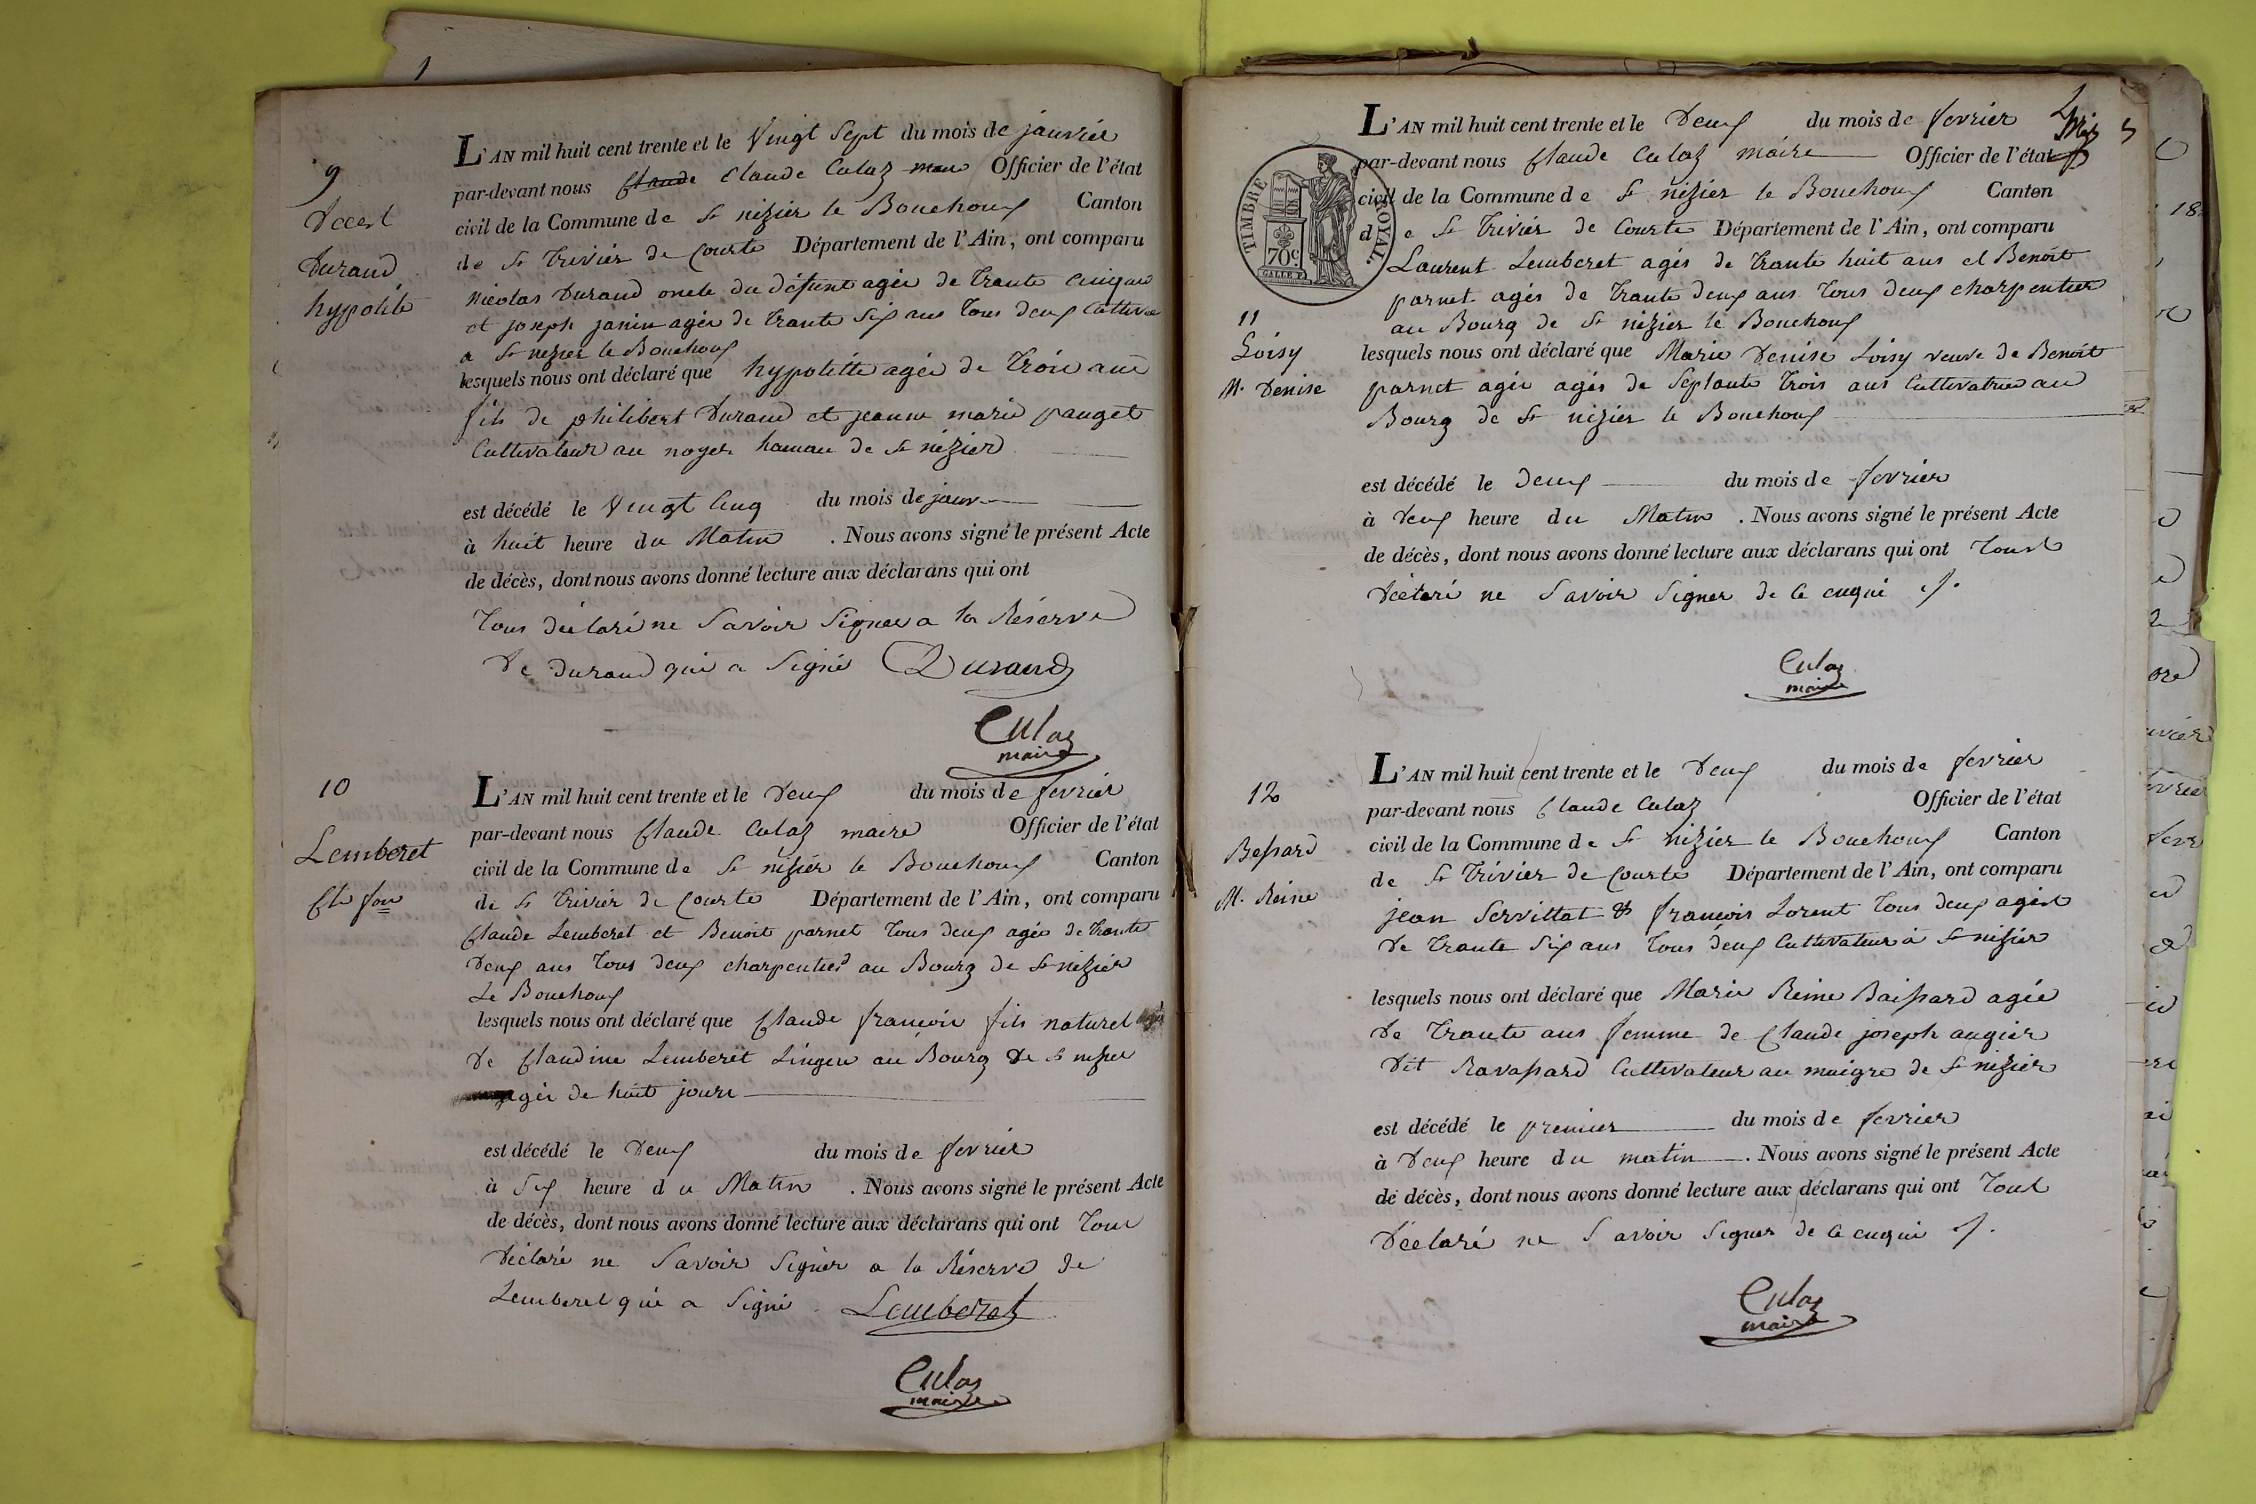 9
Décest
Durand
hypolite
L'AN mil huit cent trente et le Vingt Sept du mois de janvier
par-devant nous Claude Claude Culaz maire Officier de l'état
civil de la Commune de St nizier le Bouchoux Canton
de St Trivier de Courte Département de l'Ain, ont comparu
nicolas Durand oncle du défunt agée de trante cinq ans
et joseph janin agée de trante Six ans tous deux Cultivat
a St nizier le Bouchoux
lesquels nous ont déclaré que hypolitte agée de trois ans
fils de philibert Durand et jeanne marie pauget
Cultivateur au noyer hamau de St nizier
est décédé le Vingt Cinq du mois de janv
à huit heure du Matin . Nous avons signé le présent Acte
de décès, dont nous avons donné lecture aux déclarans qui ont
tous déclaré ne Savoir Signer a la Réserve
De Durand qui a Signé Durand
Culaz
maire
10
Lemberet
Cde fois
L'AN mil huit cent trente et le Deux du mois de fevrier
par-devant nous Claude Culaz maire Officier de l'état
civil de la Commune de St nizier le Bouchoux Canton
de St Trivier de Courte Département de l'Ain, ont comparu
Claude Lemberet et Benoit parnet tous deux agée de trante
Deux ans tous deux charpentier au Bourg de St nizier
Le Bouchoux
lesquels nous ont déclaré que Claude françois fils naturel
De Claudine Lemberet Lingere au Bourg de St nizier
agée de huit jours
est décédé le Deux du mois de fevrier
à Six heure du Matin . Nous avons signé le présent Acte
de décès, dont nous avons donné lecture aux déclarans qui ont tous
Déclaré ne Savoir Signer a la Réserve de
Lemberet qui a Signé Lemberet
Culaz
maire
TIMBRE ROYAL.
70c
11
Loisy
M. Denise
L'AN mil huit cent trente et le Deux du mois de fevrier
par-devant nous Claude Culaz maire Officier de l'état
civil de la Commune de St nizier le Bouchoux Canton
de St Trivier de Courte Département de l'Ain, ont comparu
Laurent Lemberet agés de trante huit ans et Benoit
parnet agés de trante deux ans tous deux charpentier
au Bourg de St nizier le Bouchoux
lesquels nous ont déclaré que Marie Denise Loisy veuve de Benoit
parnet agée agés de Septante trois ans Cultivatrice au
Bourg de St nizier le Bouchoux
est décédé le Deux du mois de fevrier
à Deux heure du Matin . Nous avons signé le présent Acte
de décès, dont nous avons donné lecture aux déclarans qui ont tous
Déclaré ne Savoir Signer de ce enqui
Culaz
maire
12
Bessard
M. Reine
L'AN mil huit cent trente et le Deux du mois de fevrier
par-devant nous Claude Culaz Officier de l'état
civil de la Commune de St nizier le Bouchoux Canton
de St Trivier de Courte Département de l'Ain, ont comparu
jean Servillat & françois Lorent tous deux agées
De trante Six ans tous deux Cultivateur à St nizier
lesquels nous ont déclaré que Marie Reine Baissard agée
De trante ans femme de Claude joseph augier
Dit Ravassard Cultivateur au maigre de St nizier
est décédé le premier du mois de fevrier
à Deux heure du matin . Nous avons signé le présent Acte
de décès, dont nous avons donné lecture aux déclarans qui ont tous
Déclaré ne Savoir Signer de ce enqui
Culaz
maire